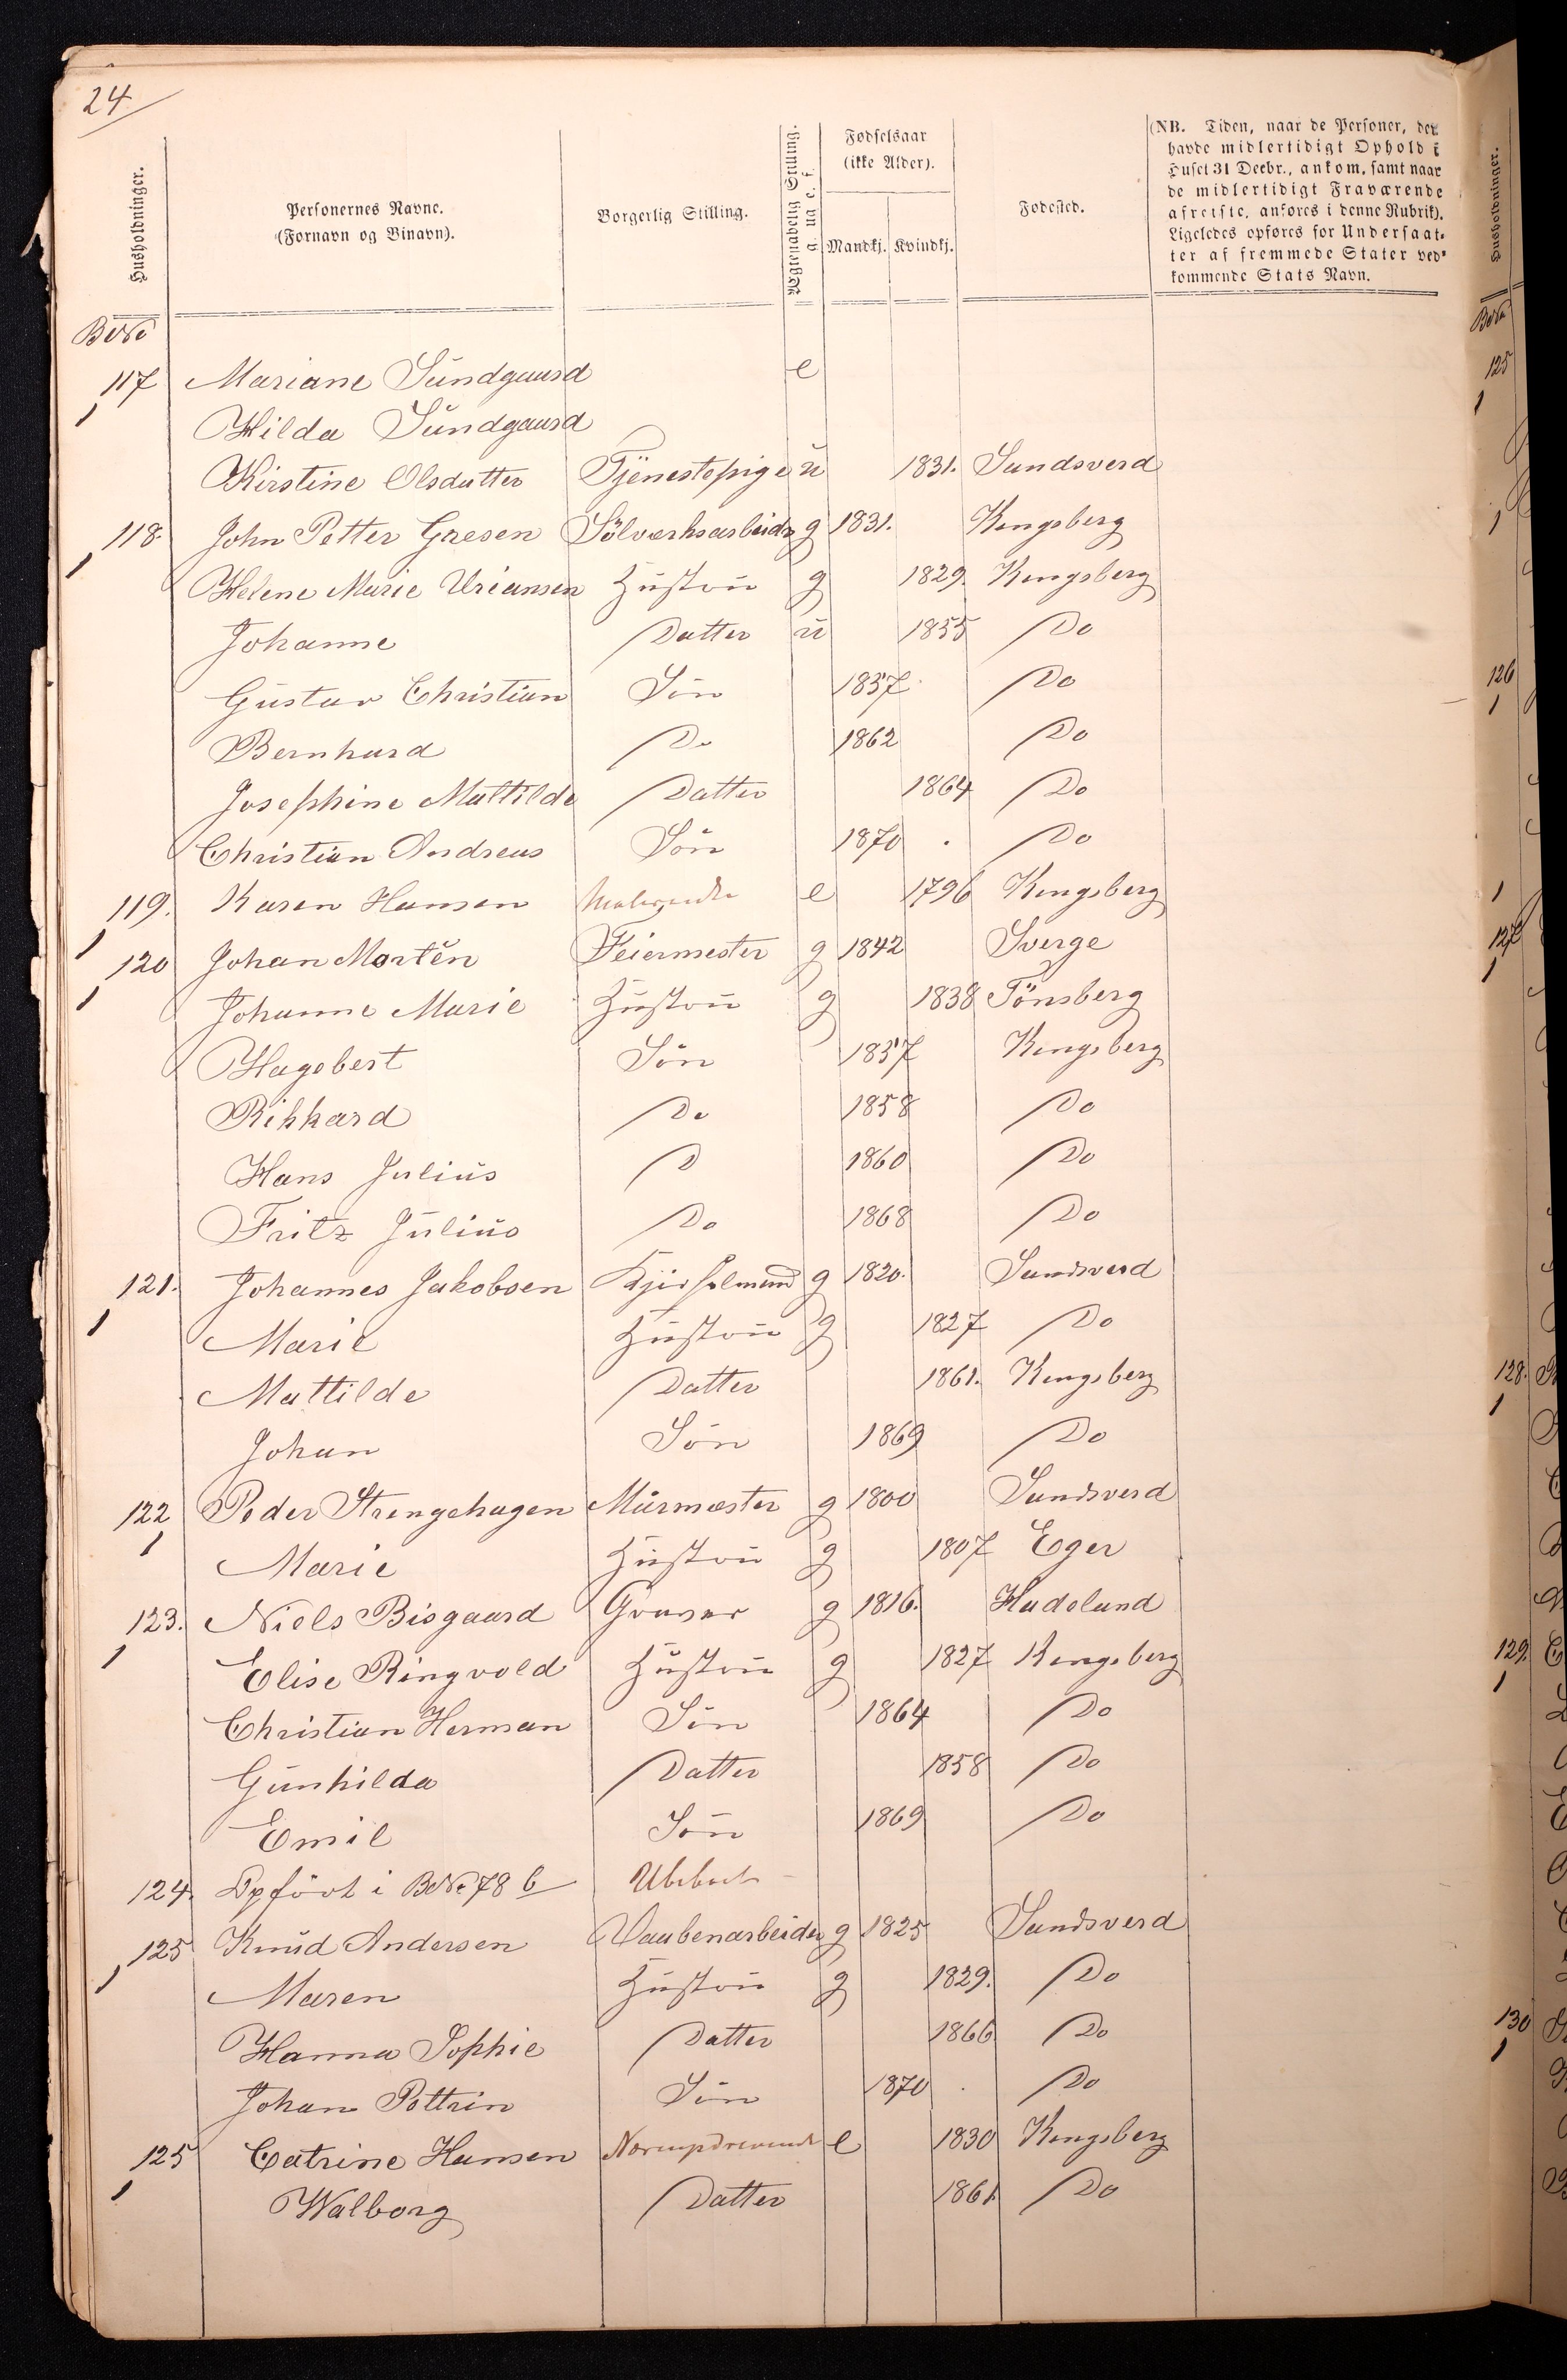 24
Husholdninger.
Personernes Navne.
(Fornavn og Binavn).
Borgerlig Stilling.
Ægteskabelig Stilling.
g. ug. e. f.
Fødselsaar
(ikke Alder).
Mandkj. Kvindkj.
Fødested.
(NB. Tiden, naar de Personer, der
havde midlertidigt Ophold i
Huset 31 Decbr., ankom, samt naar
de midlertidigt Fraværende
afreiste, anføres i denne Rubrik).
Ligeledes opføres for Undersaat-
ter af fremmede Stater ved-
kommende Stats Navn.
BNo
117 Mariane Sundgaard e
Hilda Sundgaard
Kirstine Olsdatter Tjenestepige u 1831. Sandsverd
118. John Petter Gresen Sölverksarbeider g 1831. Kongsberg
Helene Marie Uriansen Hustru g 1829. Kongsberg
Johanne Datter u 1855 Do
Gustav Christian Sön 1857 Do
Bernhard Do 1862 Do
Josephine Mattilde Datter 1864 Do
Christian Andreas Sön 1870 Do
119. Karen Hansen e 1796 Kongsberg
120 Johan Mortén Feiermester g 1842 Sverge
Johanne Marie Hustru g 1838 Tönsberg
Hagobert Sön 1857 Kongsberg
Rikkard Do 1858 Do
Hans Julius D 1860 Do
Fritz Julius Do 1868 Do
121. Johannes Jakobsen g 1820. Sandsverd
Marie Hustru g 1827 Do
Mattilde Datter 1861. Kongsberg
Johan Sön 1869 Do
122 Peder Strengehagen Murmester g 1800 Sandsverd
Marie Hustru g 1807 Eger
123. Niels Bisgaard Graver g 1816. Hadeland
Elise Ringvold Hustru g 1827 Kongsberg
Christian Herman Sön 1864 Do
Gunhilda Datter 1858 Do
Emil Sön 1869 Do
124. Opfört i BNo 78 b Ubeboet
125 Knud Andersen Vaabenarbeider g 1825 Sandsverd
Maren Hustru g 1829. Do
Hanna Sophie Datter 1866 Do
Johan Pettrin Sön 1870 Do
125 Catrine Hansen e 1830 Kongsberg
Walborg Datter 1861 Do
Husholdninger.
BNo
125
126
127
128.
129.
130